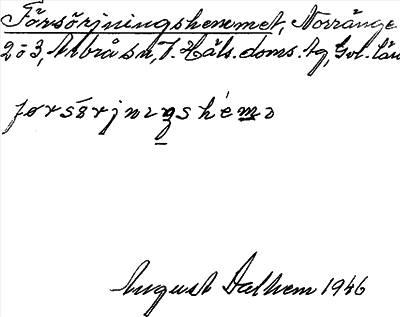 Försörjningshemmet, Norränge
2 o 3, Albrå sn, V. Häls. doms. tg, Gvl. län
førsø̄rjnıŋshémo
August Dalhem 1946